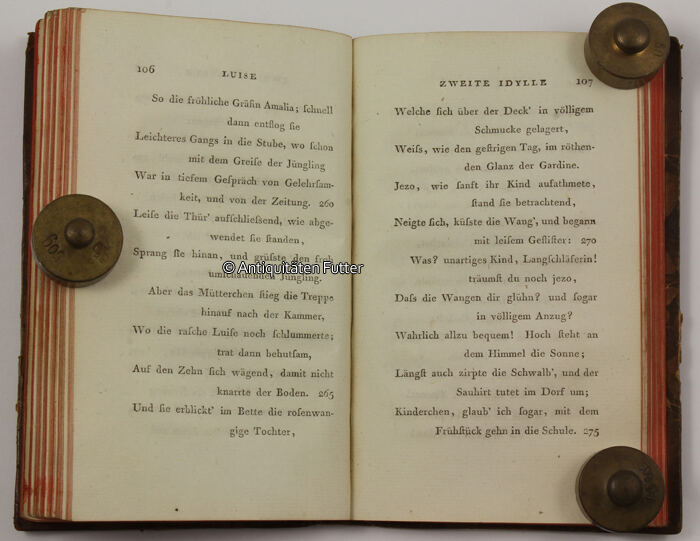 106 LUISE
So die fröhliche Gräfin Amalia; ſchnell
dann entflog ſie
Leichteres Gangs in die Stube, wo ſchon
mit dem Greiſe der Jüngling
War in tiefem Geſpräch von Gelehrſam-
keit, und von der Zeitung. 260
Leiſe die Thür' aufſchlieſsend, wie abge-
wendet ſie ſtanden,
Sprang ſie hinan, und grüſste den froh
umſchauenden Jüngling.
© Antiquitäten Futter
Aber das Mütterchen ſtieg die Treppe
hinauf nach der Kammer,
Wo die raſche Luiſe noch ſchlummerte;
trat dann behutſam,
Auf den Zehn ſich wägend, damit nicht
knarrte der Boden. 265
Und ſie erblickt' im Bette die roſenwan-
gige Tochter,
ZWEITE IDYLLE 107
Welche ſich über der Deck' in völligem
Schmucke gelagert,
Weiſs, wie den geſtrigen Tag, im röthen-
den Glanz der Gardine.
Jezo, wie ſanft ihr Kind aufathmete,
ſtand ſie betrachtend,
Neigte ſich, küſste die Wang', und begann
mit leiſem Gefliſter: 270
Was? unartiges Kind, Langſchläferin!
träumſt du noch jezo,
Daſs die Wangen dir glühn? und ſogar
in völligem Anzug?
Wahrlich allzu bequem! Hoch ſteht an
dem Himmel die Sonne;
Längſt auch zirpte die Schwalb', und der
Sauhirt tutet im Dorf um;
Kinderchen, glaub' ich ſogar, mit dem
Frühſtück gehn in die Schule. 275